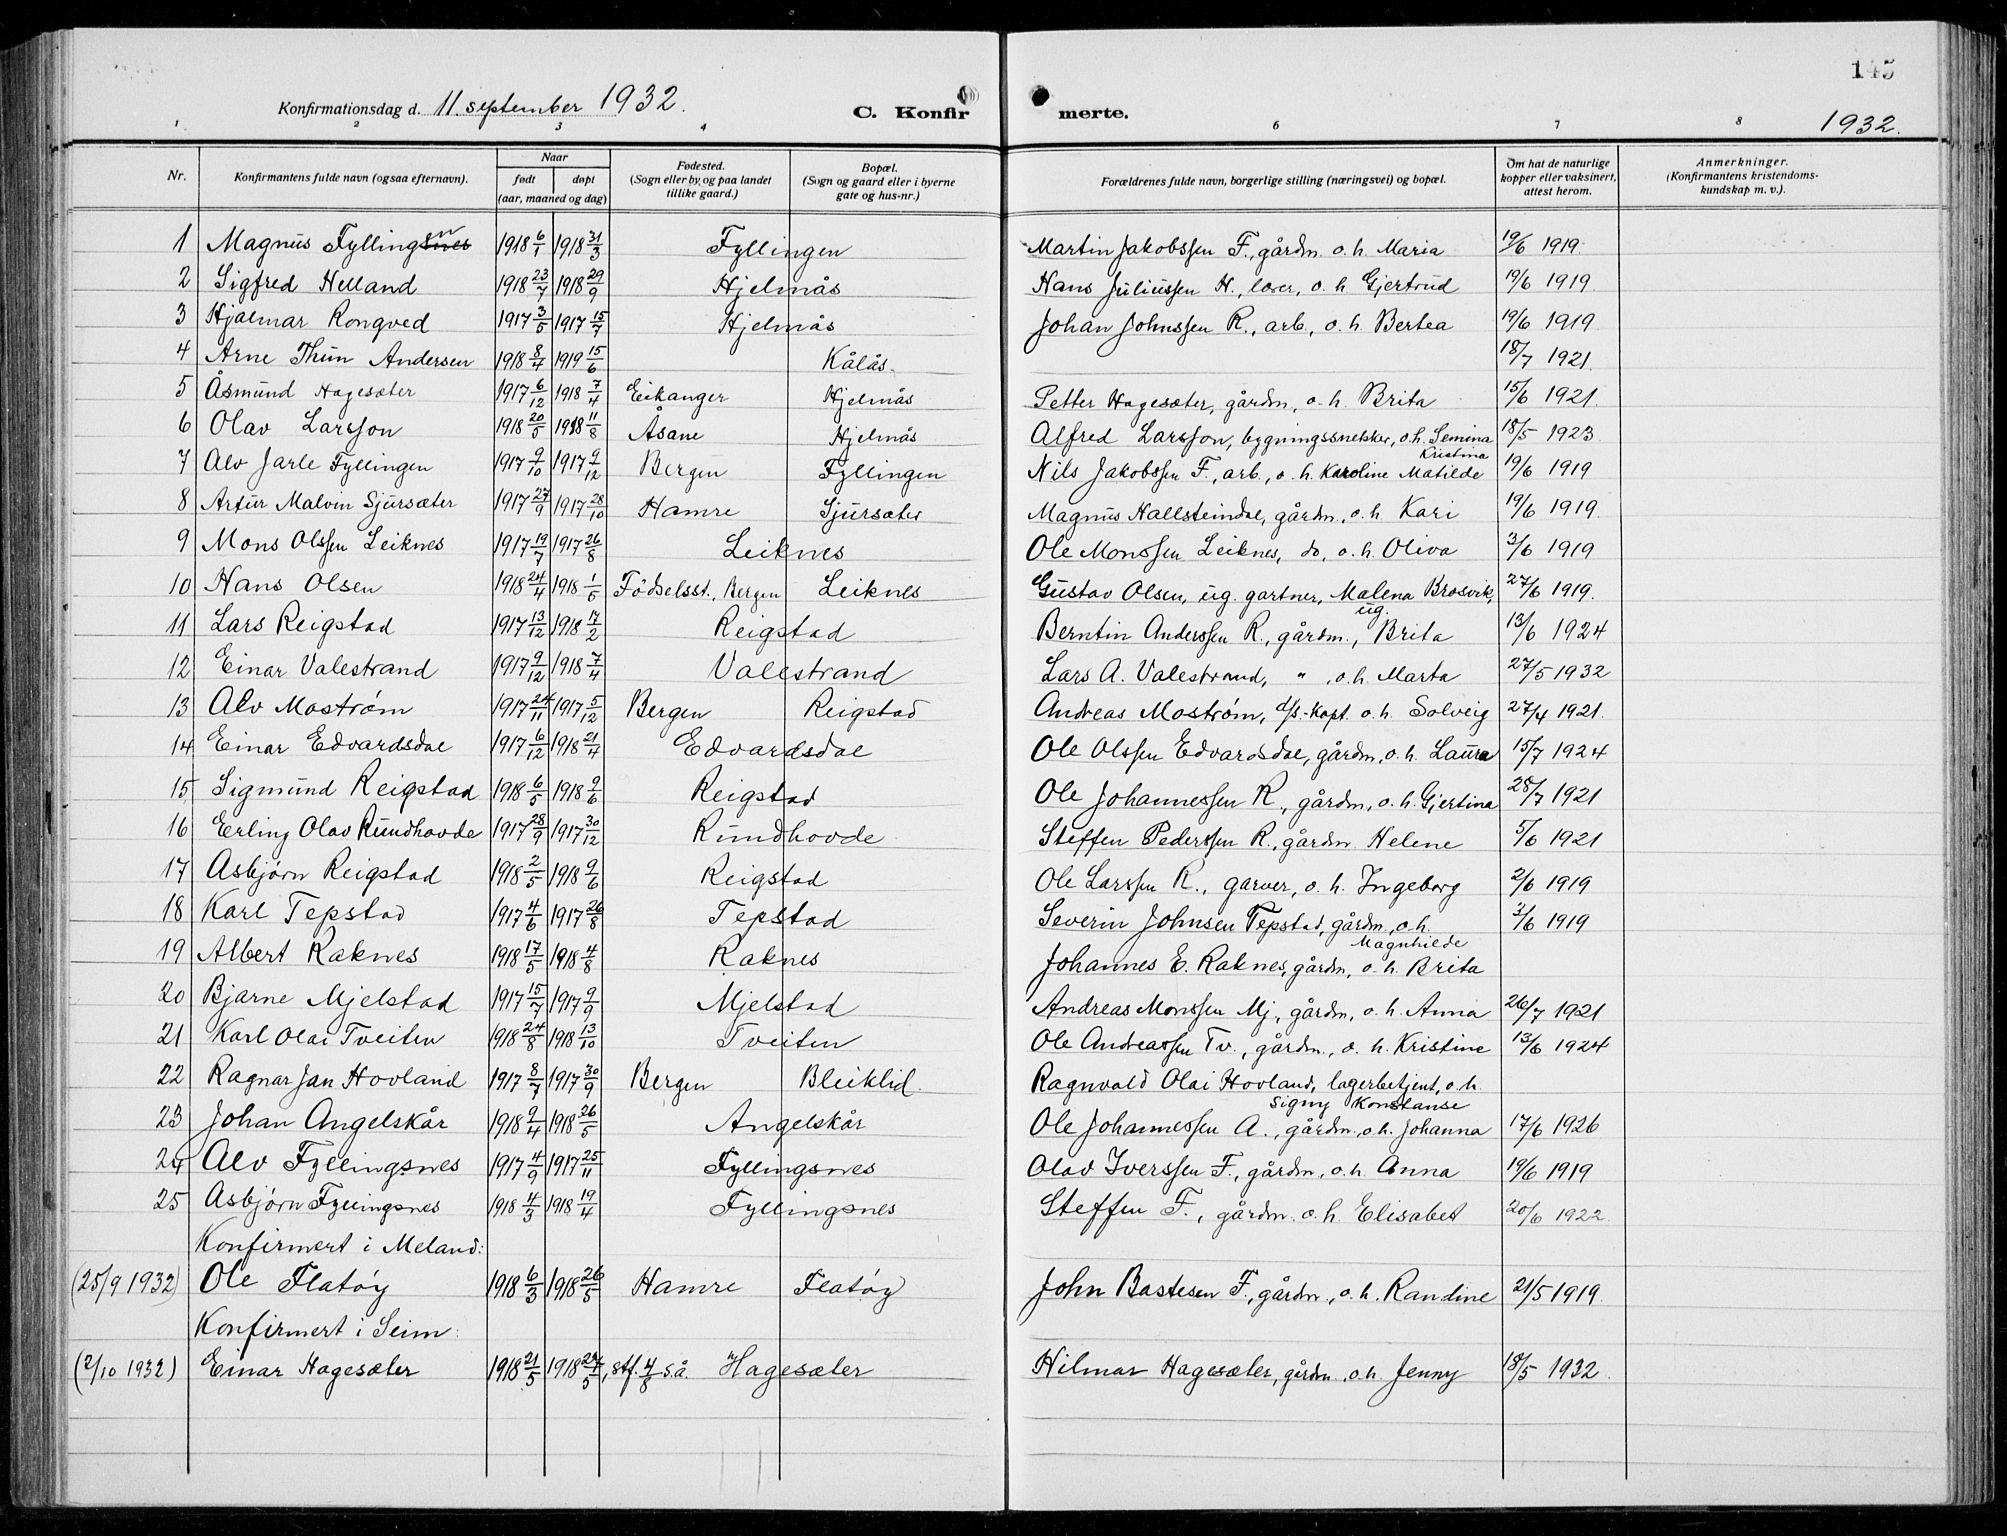 145
Konfirmationsdag d. 11. september 1932.
C. Konfirmerte.
1932.
1 2 3 4 6 7 8
Nr. Konfirmantens fulde navn (ogsaa efternavn). Naar født døpt (aar, maaned og dag) Fødested. (Sogn eller by og paa landet tillike gaard.) Bopæl. (Sogn og gaard eller i byerne gate og hus-nr.) Forældrenes fulde navn, borgerlige stilling (næringsvei) og bopæl. Om hat de naturlige kopper eller vaksinert, attest herom. Anmerkninger. (Konfirmantens kristendomskundskap m. v.).
1 Magnus Fyllingen 1918 6/1 1918 31/3 Fyllingen Martin Jakobssen F., gårdm. o. h. Maria 19/6 1919.
2 Sigfred Helland 1918 23/7 1918 29/9 Hjelmås Hans Juliussen H., lærer, o. h. Gjertrud 19/6 1919.
3 Hjalmar Rongved 1917 3/5 1917 15/7 Hjelmås Johan Johnssen R., arb., o. h. Bertea 19/6 1919
4 Arne Thun Andersen 1918 8/4 1919 15/6 Kålås. 18/7 1921.
5 Åsmund Hagesæter 1917 6/12 1918 7/4 Eikanger Hjelmås Petter Hagesæter, gårdm, o. h. Brita 15/6 1921.
6 Olav Larsson 1918 20/5 1918 11/8 Åsane Hjelmås Alfred Larsson, bygningssnekker, o.h. Semina Kristina 18/5 1923
7 Alv Jarle Fyllingen 1917 9/10 1917 9/12 Bergen Fyllingen Nils Jakobssen F., arb., o. h. Karoline Matilde 19/6 1919
8 Artur Malvin Sjursæter 1917 27/9 1917 28/10 Hamre Sjursæter Magnus Hallsteindal, gårdm., o. h. Kari 19/6 1919.
9 Mons Olssen Leiknes 1917 19/7 1917 26/8 Leiknes Ole Monssen Leiknes, do, o. h. Oliva 3/6 1919
10 Hans Olsen 1918 24/4 1918 1/5 Fødselsst., Bergen Leiknes Gustav Olsen, ug. gartner, Malena Brosvik, ug. 27/6 1919.
11 Lars Reigstad 1917 13/12 1918 17/2 Reigstad Berntin Anderssen R., gårdm., Brita 13/6 1924
12 Einar Valestrand 1917 9/12 1918 7/4 Valestrand Lars A. Valestrand, " , o. h. Marta 27/5 1932
13 Alv Mostrøm 1917 24/11 1917 5/12 Bergen Reigstad Andreas Mostrøm, d/s.-kapt. o. h. Solveig 27/4 1921.
14 Einar Edvardsdal 1917 6/12 1918 21/4 Edvardsdal Ole Olssen Edvardsdal, gårdm, o. h. Laura 15/7 1924
15 Sigmund Reigstad 1918 6/5 1918 9/6 Reigstad Ole Johannessen R., gårdm, o. h. Gjertina 28/7 1921
16 Erling Olav Rundhovde 1917 28/9 1917 30/12 Rundhovde Steffen Pederssen R., gårdm. Helene 5/6 1921
17 Asbjørn Reigstad 1918 2/5 1918 9/6 Reigstad Ole Larssen R., garver, o. h. Ingeborg 2/6 1919
18 Karl Tepstad 1917 4/6 1917 26/8 Tepstad Severin Johnsen Tepstad, gårdm., o.h. Magnhilde 3/6 1919
19 Albert Raknes 1918 17/5 1918 4/8 Raknes Johannes E. Raknes, gårdm, o. h. Brita
20 Bjarne Mjelstad 1917 15/7 1917 9/9 Mjelstad Andreas Monssen Mj., gårdm, o. h. Anna 26/7 1921
21 Karl Olai Tveiten 1918 24/8 1918 13/10 Tveiten Ole Andreassen Tv., gårdm., o. h. Kristine 13/6 1924
22 Ragnar Jan Hovland 1917 8/7 1917 30/9 Bergen Bleiklid. Ragnvald Olai Hovland, lagerbetjent, o. h. Signy Konstanse
23 Johan Angelskår 1918 9/4 1918 26/5 Angelskår Ole Johannessen A., gårdm., o. h. Johanna 17/6 1926
24 Alv Fyllingsnes 1917 4/9 1917 25/11 Fyllingsnes Olav Iverssen F., gårdm, o. h. Anna 19/6 1919
25 Asbjørn Fyllingsnes 1918 4/3 1918 19/4 Fyllingsnes Steffen F., gårdm. o. h. Elisabet 20/6 1922
Konfirmert i Meland:
(25/9 1932) Ole Flatøy 1918 6/3 1918 26/5 Hamre Flatøy John Bastesen F., gårdm., o. h. Randine 21/5 1919.
Konfirmert i Seim:
(2/10 1932) Einar Hagesæter 1918 21/5 1918 24/5, stf. 4/8 s.å. Hagesæter Hilmar Hagesæter, gårdm., o. h. Jenny 18/5 1932.